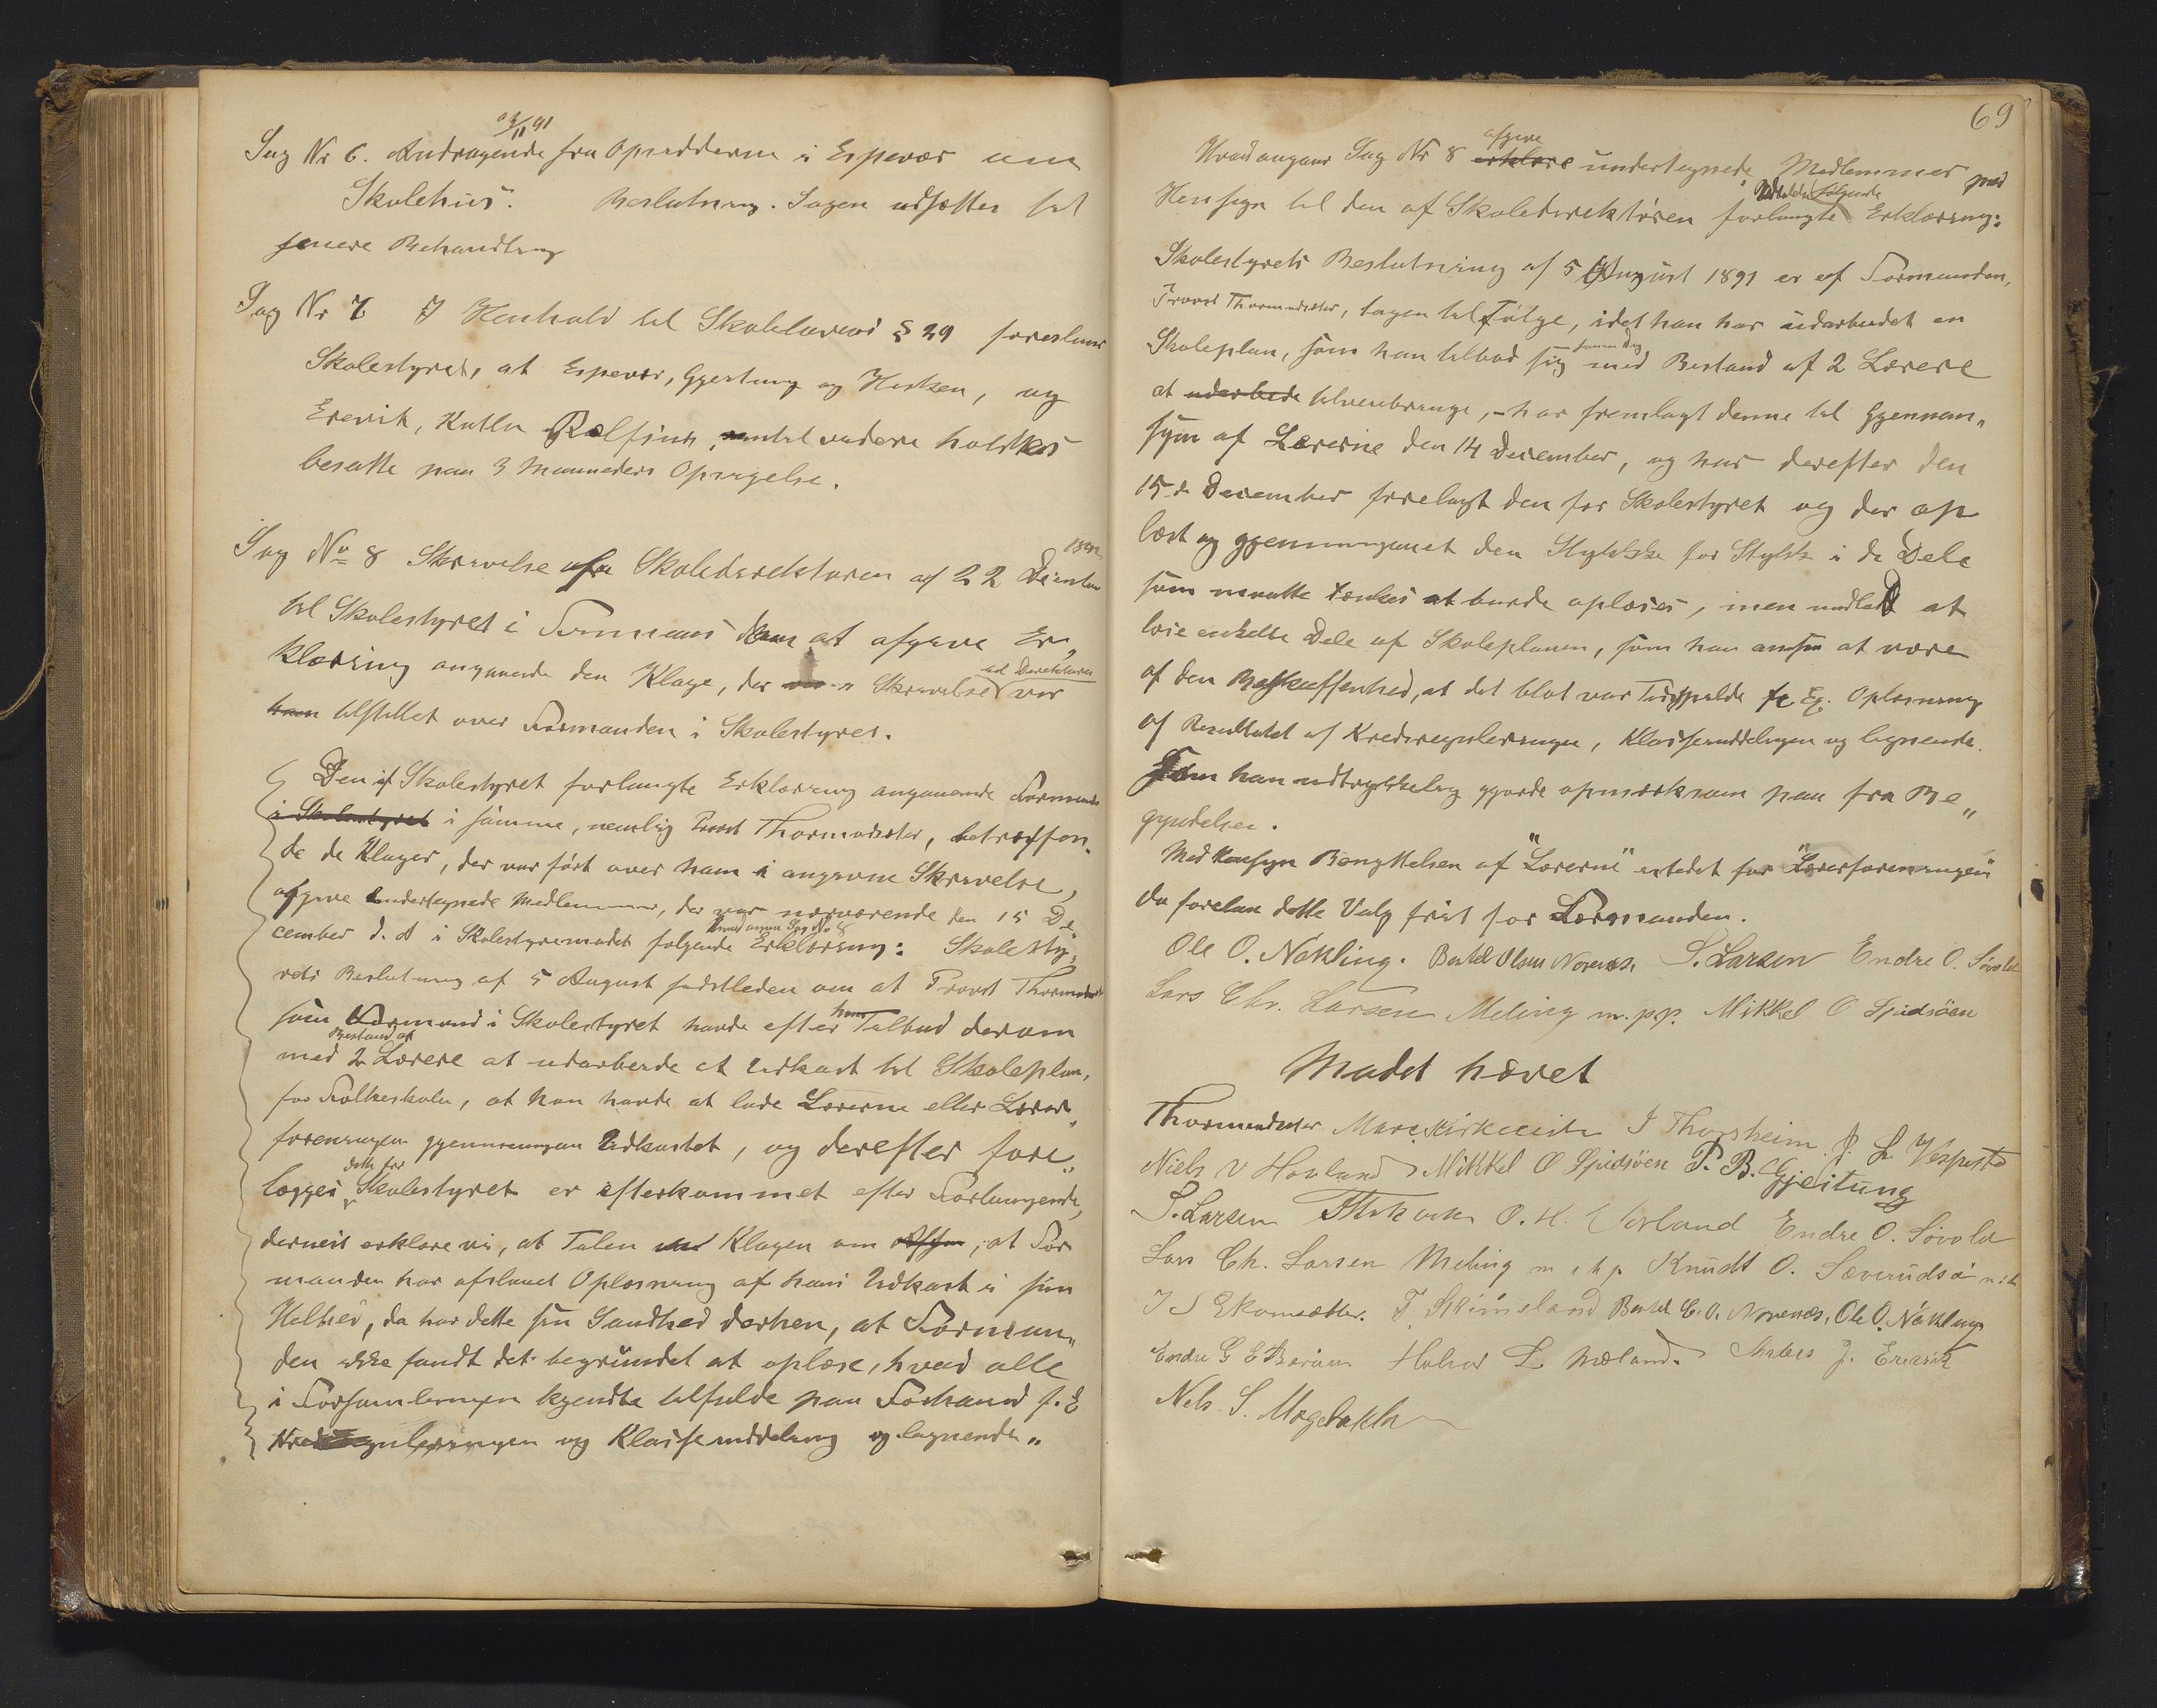 09/11 91
Sag Nr 6. Andragende fra Opsidderne i Espevær um
Skolehus. Beslutning. Sagen udsættes til
senere Behandling
Sag Nr 7 I Henhold til Skolelovens § 29 foreslaar
Skolestyret, at Espevær, Gjeitung og Hisken, og
Erevik, Kulle Rolfsnes, indtil videre holdes
besatte paa 3 Maaneders Opsigelse.
Sag No 8 Skrivelse fra Skoledirektøren af 22 Decembr 1891
til Skolestyret i Finnaas om at afgive Er„
klæring angaaende den Klage, der i Skrivelse ad Direktøren var
ham tilstillet over Formanden i Skolestyret.
Den af Skolestyret forlangte Erklæring angaaende Formand
i Skolestyret i samme, nemlig Provst Thormodsæter, betræffen„
de de Klager, der var ført over ham i angivne Skrivelse,
afgive undertegnede Medlemmer, der var nærværende den 15 De„
cember d. A i Skolestyremødet følgende Erklæring: Skolesty„
rets Beslutning af 5 August sidstleden om at Provst Thormodsæter
som Formand i Skolestyret havde efter hans Tilbud derom
med Bestand af 2 Lærere at udarbeide et Udkast til Skoleplan,
for Folkeskolen, at han havde at lade Lærerne eller Lærer„
foreningen gjennemgaa Udkastet, og derefter fore„
lægges dette for Skolestyret er efterkommet efter Forlangende,
dernæst erklære vi, at Talen Klagen om at For
manden har afslaaet Oplæsning af hans Udkast i sin
Helhed, da har dette sin Sandhed derhen, at Forman„
den ikke fandt det begrundet at oplæse, hvad alle
i Forsamlingen kjendte tilfulde paa Forhaand f. E
Kredsreguleringen og Klasseinddeling og lignende„
69
Hvad angaar Sag Nr 8 afgive erklære undertegnede Medlemmer med
Hensyn til den af Skoledirektøren forlangte følgende Erklæring:
Skolestyrets Beslutning af 5 August 1891 er af Formanden,
Provst Thormodsæter, tagen til Følge, idet han har udarbeidet en
Skoleplan, som han tilbød sig samme Dag med Bestand af 2 Lærere
at udarbeide tilveiebringe, - har fremlagt denne til Gjennem„
syn af Lærerne den 14 December, og har derefter den
15de December forelagt den for Skolestyret og der op
læst og gjennemgaaet den Stykke for Stykke i de Dele
som maatte tænkes at burde oplæses, men undlod at
læse enkelte Dele af Skoleplanen, som han ansaa at være
af den Beskaffenhed, at det blot var Tidsspilde f. Ex. Oplæsning
af Resultatet af Kredsreguleringen, Klasseinddelingen og lignende.
Som han udtrykkelig gjorde opmærksom paa fra Be„
gyndelsen.
Med Hensyn Benyttelsen af "Lærerne" istedet for "Lærerforeningen"
da forelaa dette Valg frit for Formanden.
Ole O. Nøkling. Bertel Olsen Norenæs, S. Larsen Endre O. Søvold
Lars Chr. Larsen Meling m. p.p. Mikkel O Spidsöen
Mødet hævet
Thormodsæter J Thorsheim J. L Vespestad
Niels V Hovland Mikkel O Spidsöen P. B. Gjeitung
S. Larsen O. H. Vorland Endre O. Søvold
Lars Ch. Larsen Meling m. p Knudt O. Sæverudsö
I S Ekornsæter. T. Grimeland Bertel C. O. Norenæs, Ole O. Nøkling
Endre G E Halvor L Mæland. J. Erevik
Nels S. Mogebakke